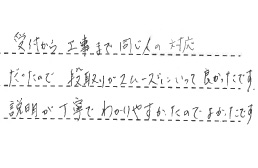 受付から工事まで同じ人の対応
だったので 段取りがスムーズにいって良かったです
説明が丁寧でわかりやすかったのでよかったです